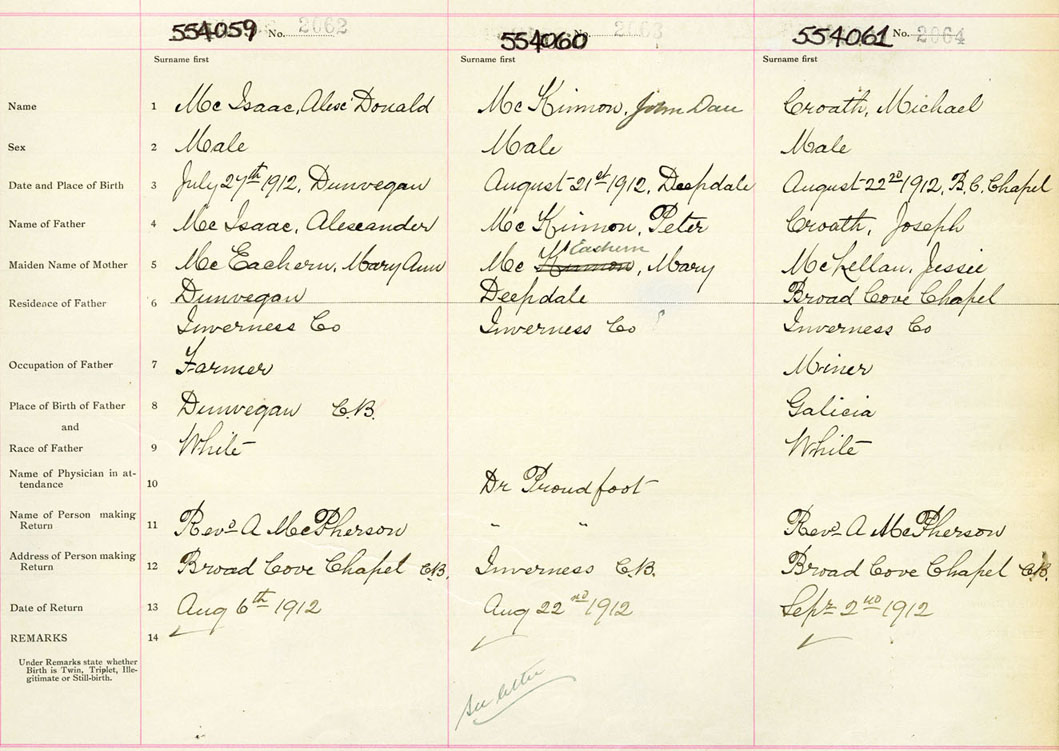 554059 No. 2062 554060 No. 2063 554061 No. 2064
Surname first Surname first Surname first
Name 1 Mc Isaac, Alex Donald Mc Kinnon, John Dan Croath, Michael
Sex 2 Male Male Male
Date and Place of Birth 3 July 27th 1912, Dunvegan August 21st 1912, Deepdale August 22nd 1912, B.C. Chapel
Name of Father 4 Mc Isaac, Alexander Mc Kinnon, Peter Croath, Joseph
McEachern
Maiden Name of Mother 5 Mc Eachern, Mary Ann Mc Kinnon, Mary McLellan, Jessie
Residence of Father 6 Dunvegan Deepdale Broad Cove Chapel
Inverness Co Inverness Co Inverness Co
Occupation of Father 7 Farmer Miner
Place of Birth of Father 8 Dunvegan C.B. Galicia
and
Race of Father 9 White White
Name of Physician in at-
tendance 10 Dr Proudfoot
Name of Person making
Return 11 Revd A McPherson " " Revd A McPherson
Address of Person making
Return 12 Broad Cove Chapel C.B. Inverness C.B. Broad Cove Chapel C.B.
Date of Return 13 Aug 6th 1912 Aug 22nd 1912 Sept 2nd 1912
REMARKS 14
Under Remarks state whether
Birth is Twin, Triplet, Ille-
gitimate or Still-birth.
See letter